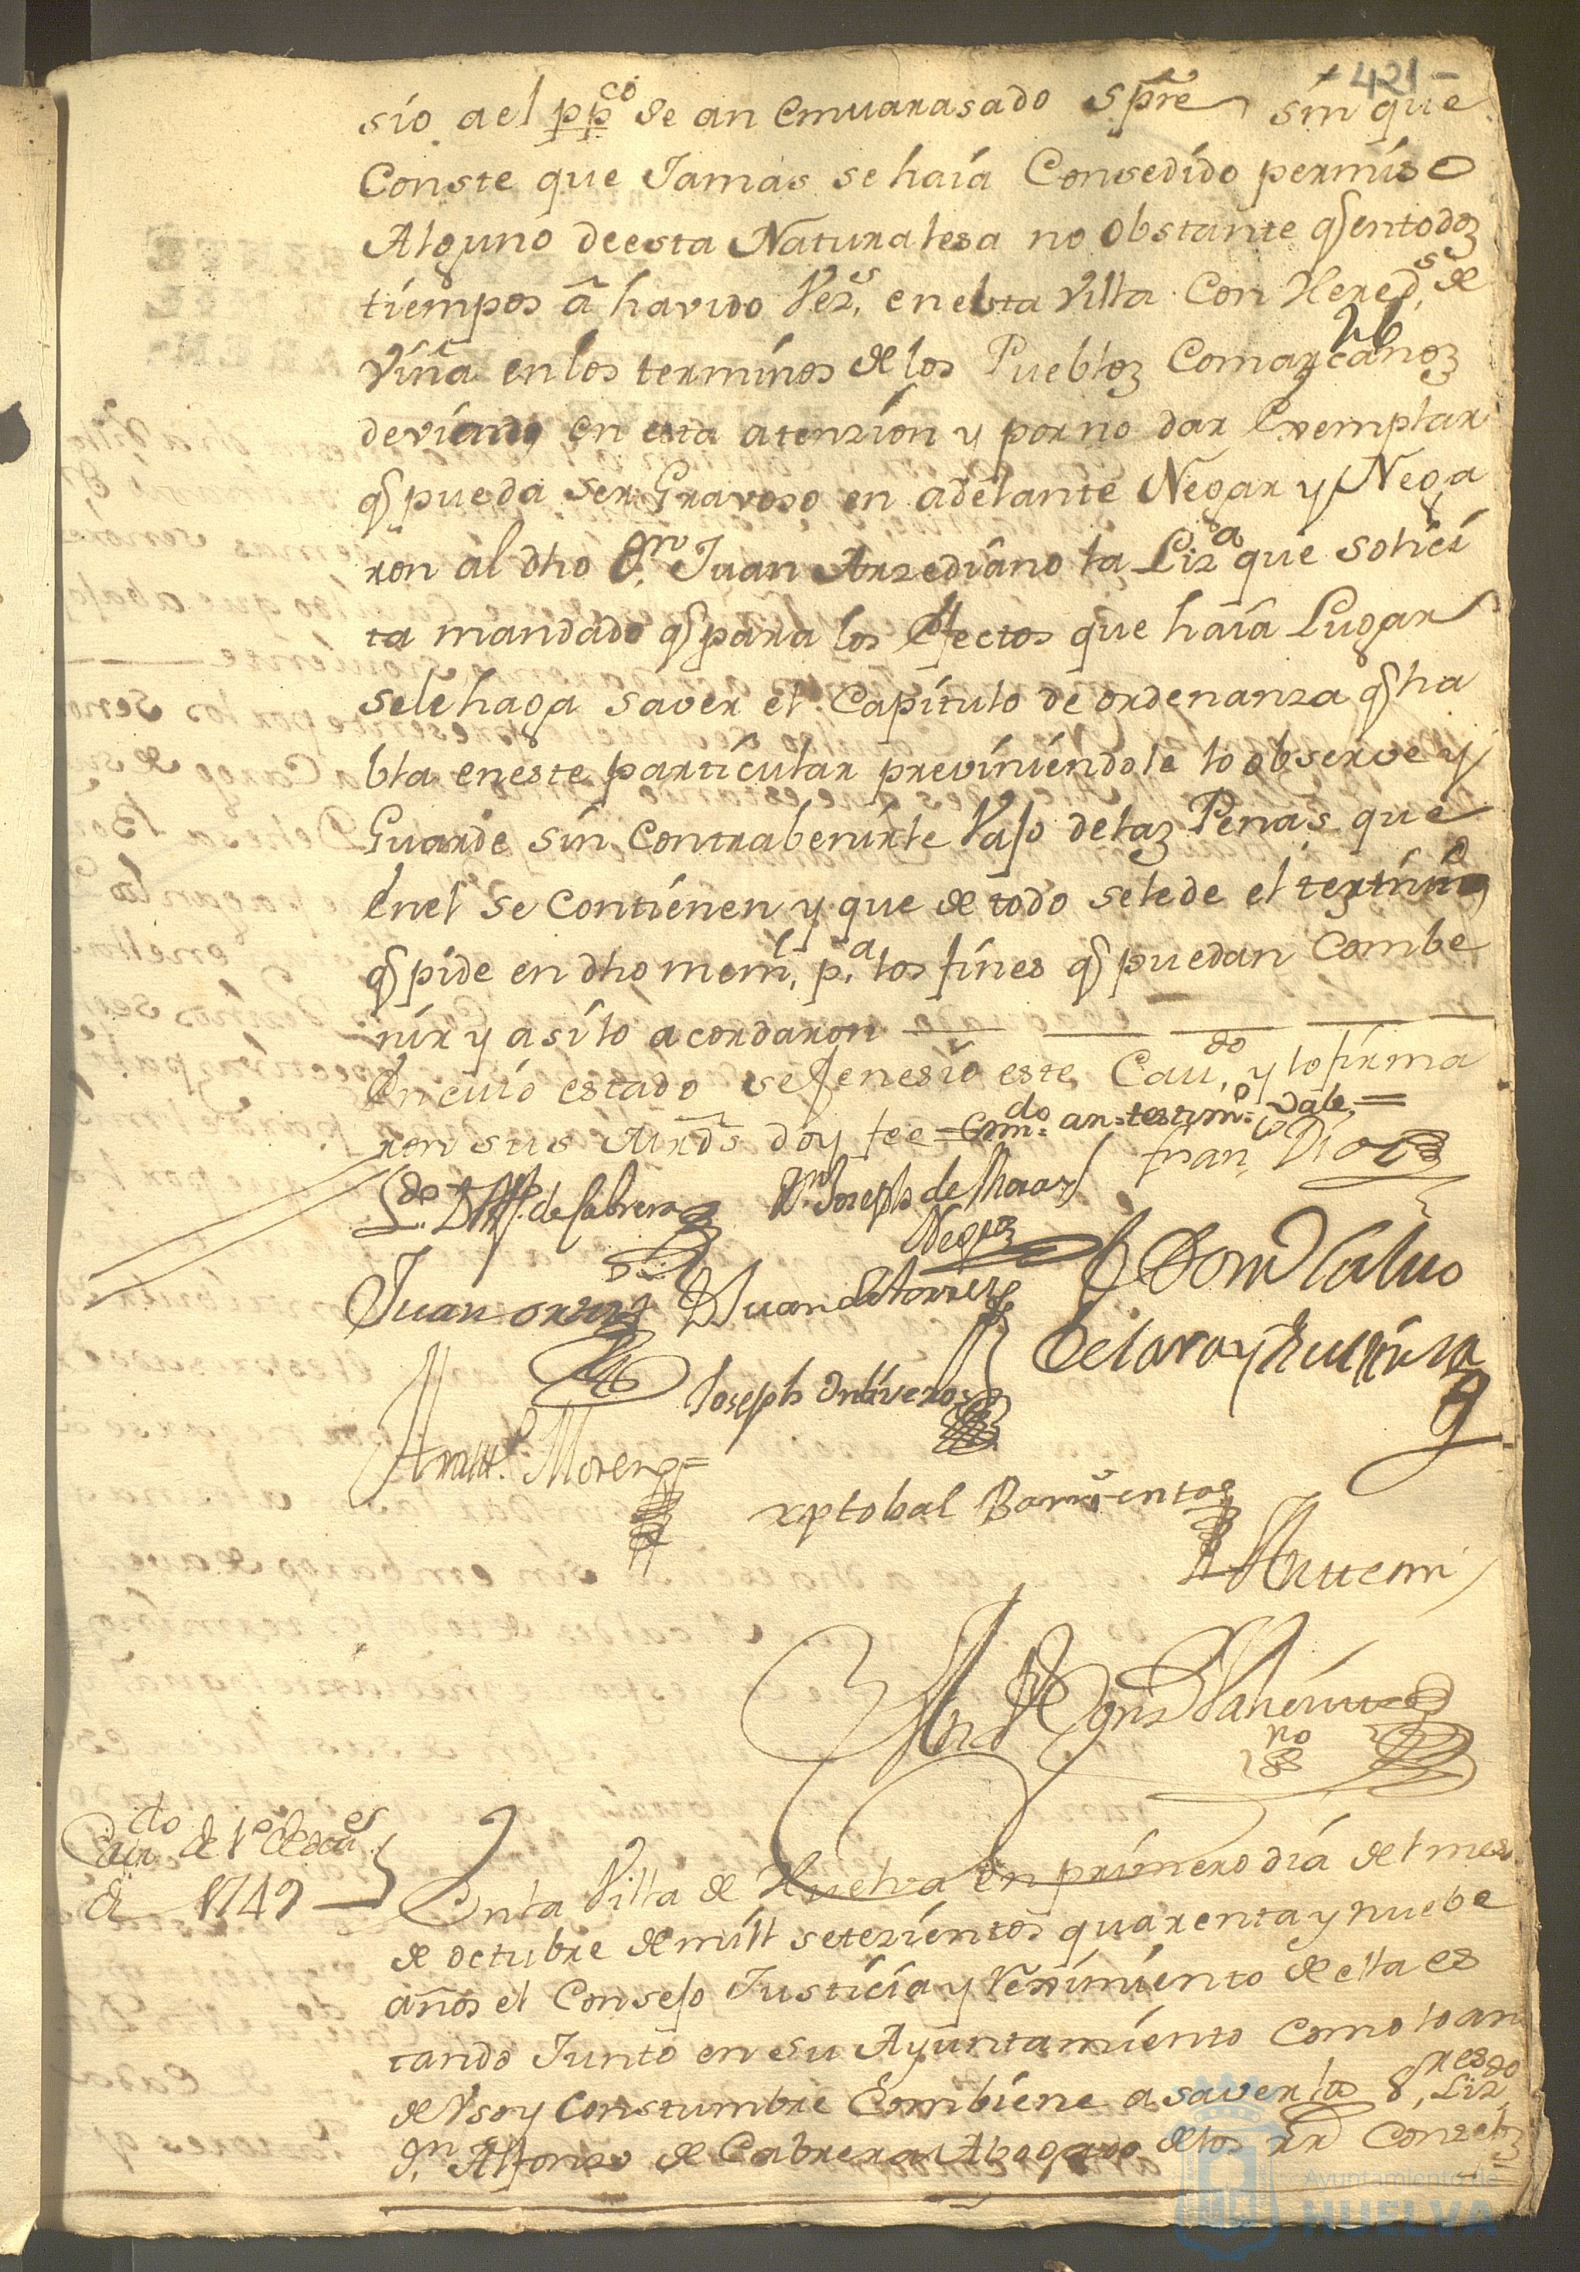 421
sio a el pp.co se an emvarasado spre sin que
Conste que Jamas se haia Consedido permiso
Alguno de esta Naturalesa no obstante q en todos
tiempos â havido Vez.s en esta Villa Con Hered.s de
Viña en los terminos de los Pueblos Comarcanos
deviendo en esta atenzion y por no dar Exemplar
q pueda ser Gravoso en adelante Negar y Nega
ron al dho D.n Juan Arzediano la Liz.a que solici
ta mandado q para los Efectos que haia Lugar
se le haga saver el Capitulo de ordenanza q ha
bla en este particular previniendole lo observe y
Guarde sin Contrabenirle Vajo de las Penas que
En el se Contienen y que de todo se le de el testimo
q pide en dho mem.l p.a los fines q puedan Combe
nir y asi lo acordaron
En cuio estado se fenesio este Cav.do y lo firma
ron sus Mrds doy fee = Em.do an = testim.o Vale =
L.do D Alf. de Cabrera D.n Joseph de Moras Fran.co Diaz
Negro
Juan ortiz D Juan de torres D Dom Calvo
Joseph Ontiveros de lara y
Moreno
xptobal Barrientos
Ante mi
no
Cav.do de 1.o de oct.es
de 1749
En la Villa de Huelva en primero dia del mes
de octubre de mill setezientos quarenta y nuebe
años el Consejo Justicia y Reximiento de ella es
tando Junto en su Ayuntamiento Como lo an
de Vso y Constumbre Combiene a saver los S.res Liz.do
D.n Alfonso de Cabrera Abogado de los RR Consejos
Ayuntamiento de
HUELVA